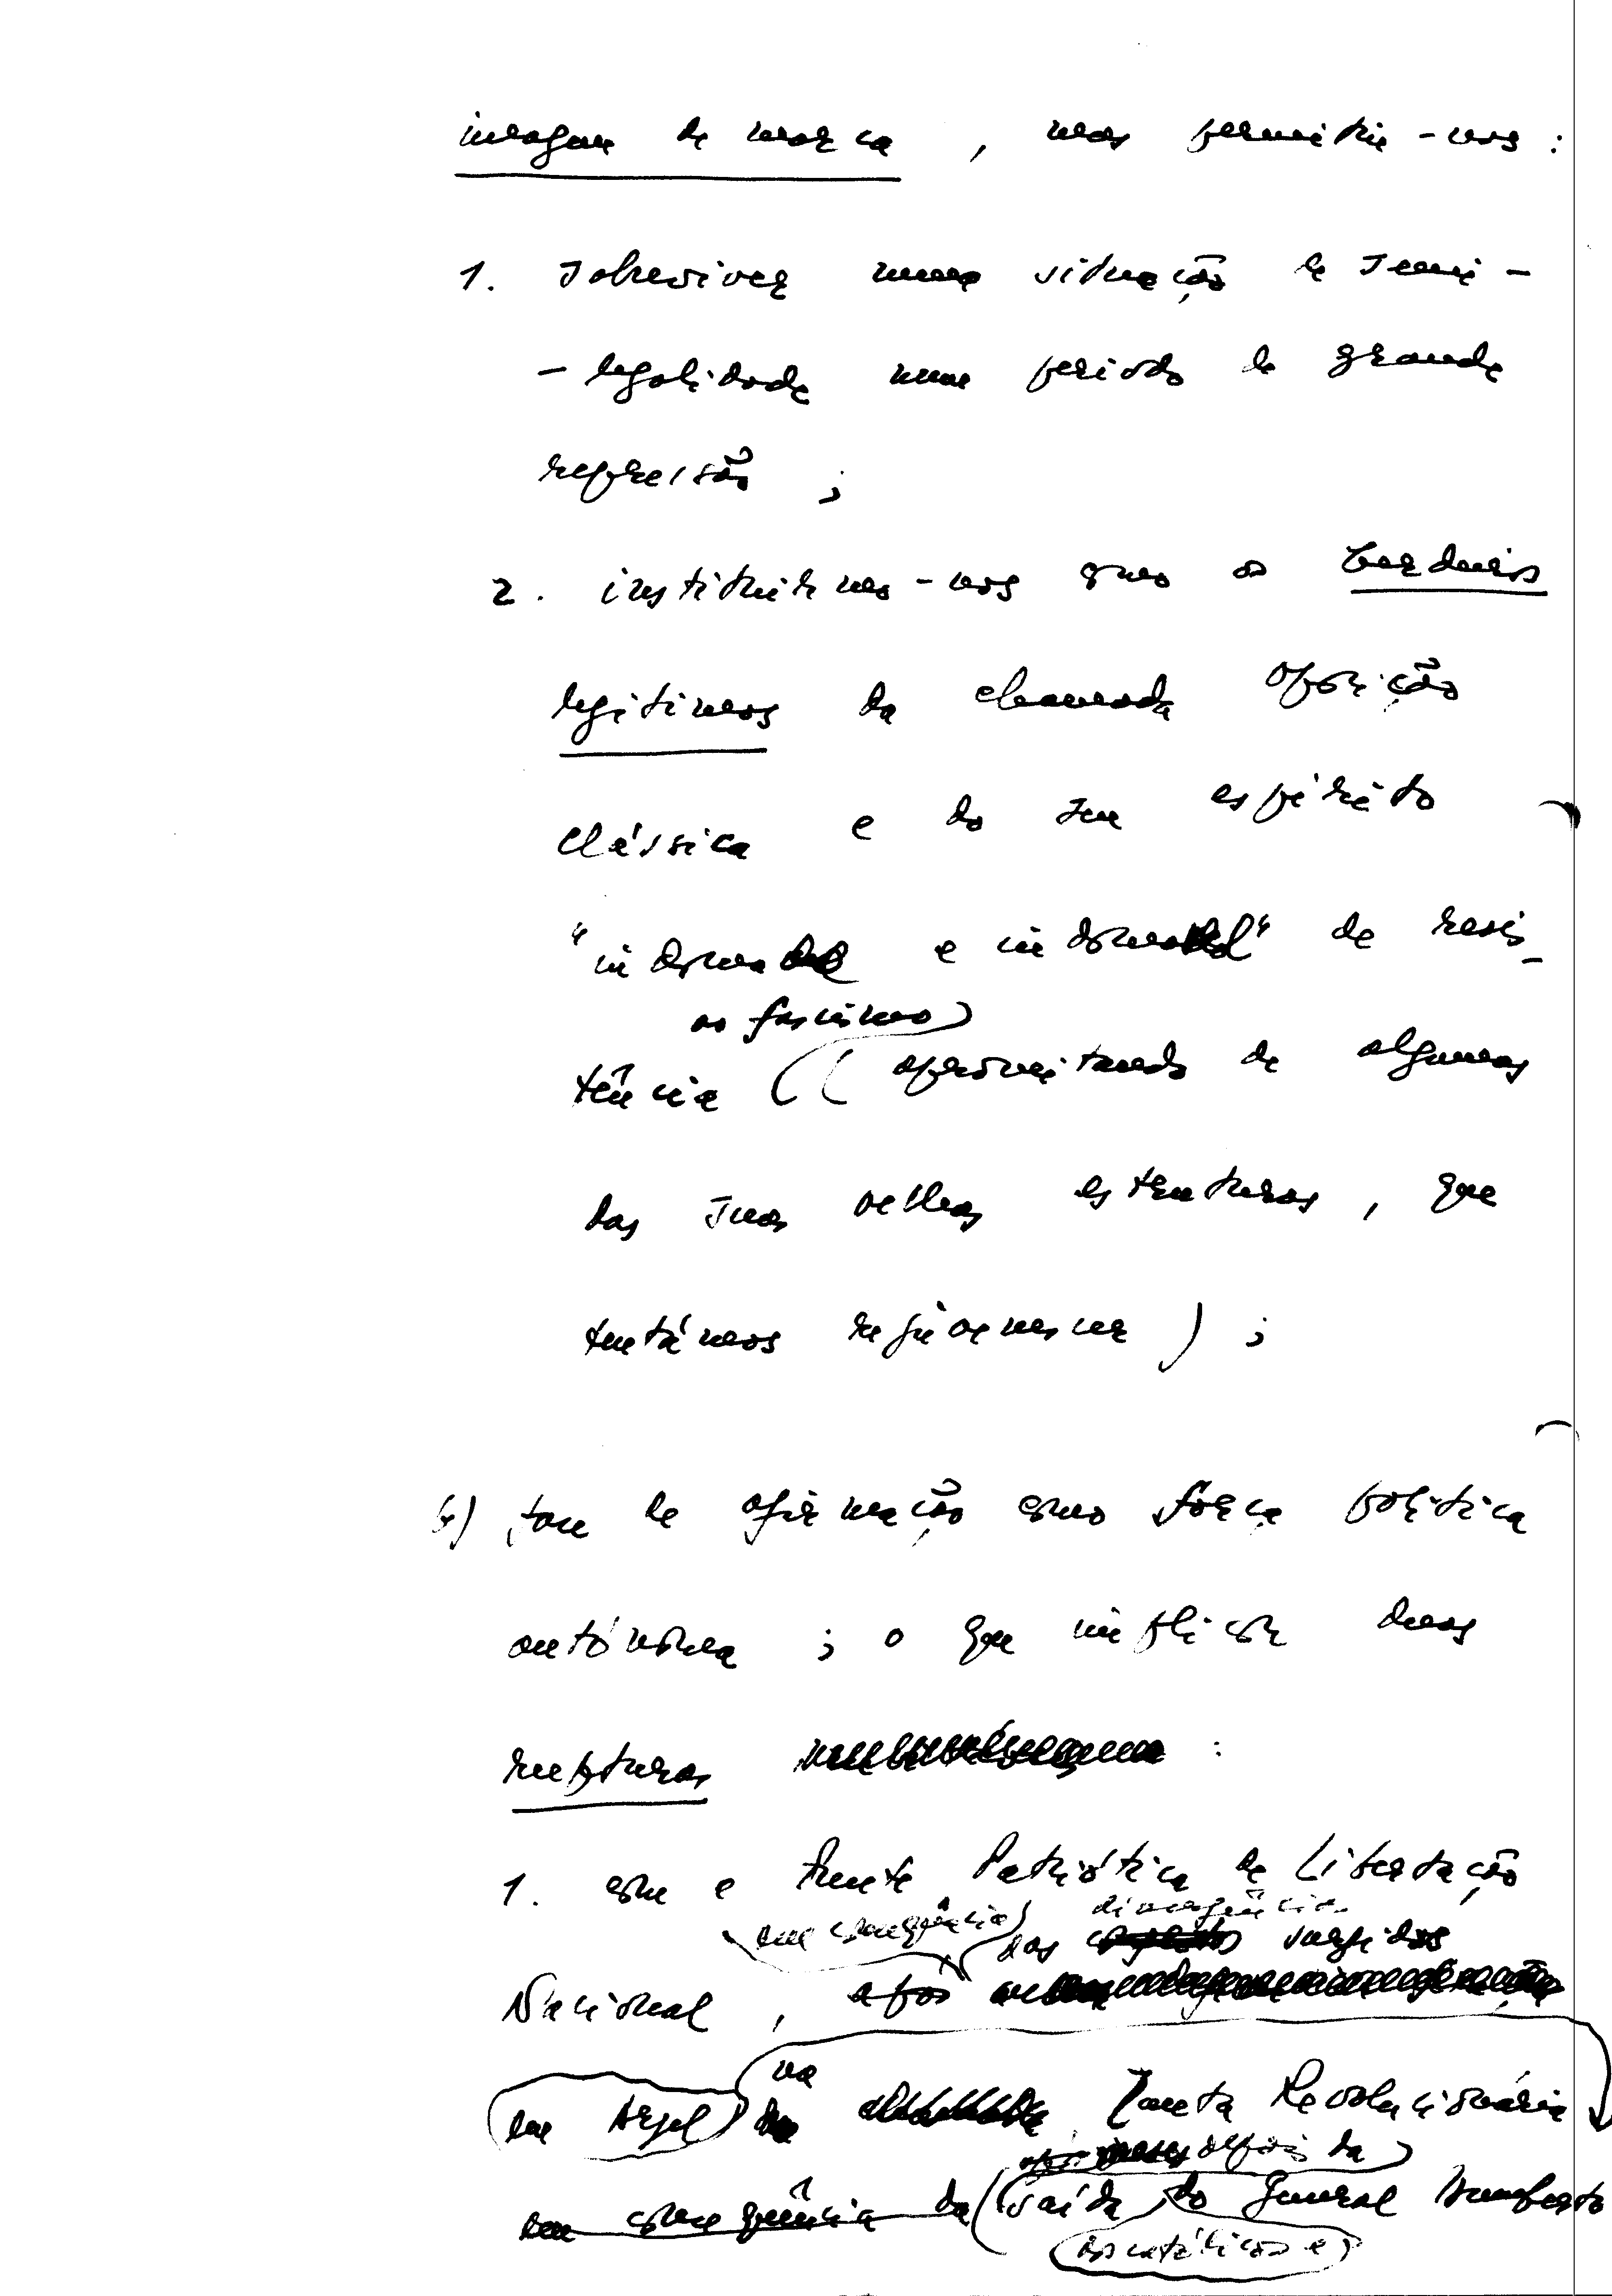 imagem de marca, mas permitiu-nos:
1. Sobreviver numa situação de semi-
-legalidade num período de grande
repressão;
2. instituirmo-nos como os herdeiros
legítimos da chamada oposição
clássica e do seu espírito
"indomado e indomável" de resis-
ao fascismo
tência (aproveitando de algumas
das suas velhas estruturas, que
tentámos rejuvenescer);
b) fase de afirmação como força política
autónoma; o que implicou duas
rupturas :
1. com a Frente Patriótica de Libertação
em consequência das divergências surgidas
Nacional, após
em Argel na Junta Revolucionária
depois da
em consequência da saída do General Humberto
dos católicos e